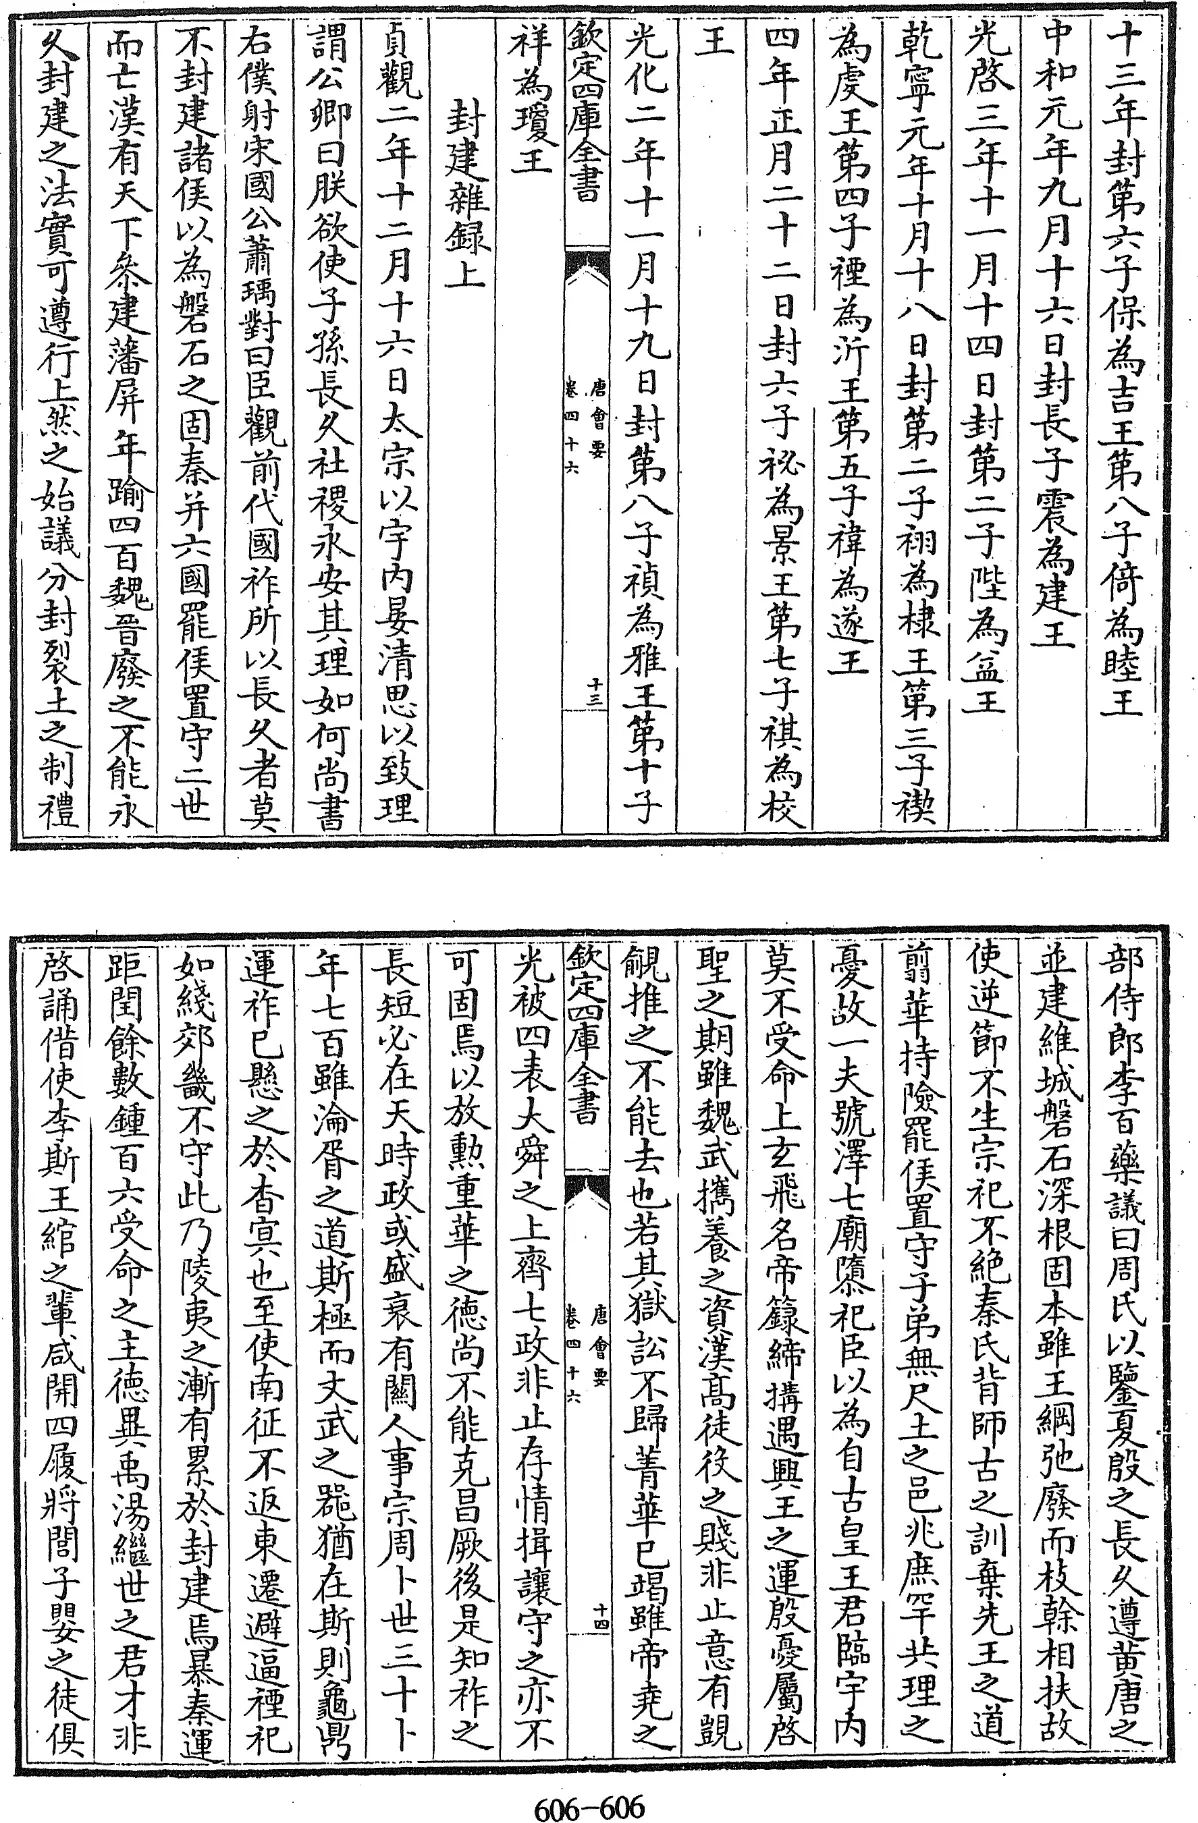 十三年封第六子保為吉王第八子倚為睦王
中和元年九月十六日封長子震為建王
光啓三年十一月十四日封第二子陞為益王
乾寧元年十月十八日封第二子祤為棣王第三子禊
為虔王第四子禋為沂王第五子禕為遂王
四年正月二十二日封六子祕為景王第七子祺為校
王
光化二年十一月十九日封第八子禎為雅王第十子
欽定四庫全書
唐會要
卷四十六
十三
祥為瓊王
封建雜録上
貞觀二年十二月十六日太宗以宇内晏清思以致理
謂公卿曰朕欲使子孫長久社稷永安其理如何尚書
右僕射宋國公蕭瑀對曰臣觀前代國祚所以長久者莫
不封建諸侯以為磐石之固秦并六國罷侯置守二世
而亡漢有天下叅建藩屏年踰四百魏晉廢之不能永
久封建之法實可遵行上然之始議分封裂土之制禮
部侍郎李百藥議曰周氏以鑒夏殷之長久遵黄唐之
並建維城磐石深根固本雖王綱弛廢而枝幹相扶故
使逆節不生宗祀不絶秦氏背師古之訓棄先王之道
翦華持險罷侯置守子弟無尺土之邑兆庶罕共理之
憂故一夫號澤七廟隳祀臣以為自古皇王君臨宇内
莫不受命上玄飛名帝籙締搆遇興王之運殷憂屬啓
聖之期雖魏武攜養之資漢髙徒役之賤非止意有覬
覦推之不能去也若其獄訟不歸菁華已竭雖帝堯之
欽定四庫全書
唐會要
卷四十六
十四
光被四表大舜之上齊七政非止存情揖讓守之亦不
可固焉以放勲重華之德尚不能克昌厥後是知祚之
長短必在天時政或盛衰有關人事宗周卜世三十卜
年七百雖淪胥之道斯極而文武之器猶在斯則龜鼎
運祚已懸之於杳冥也至使南征不返東遷避逼禋祀
如綫郊畿不守此乃陵夷之漸有累於封建焉暴秦運
距閏餘數鍾百六受命之主德異禹湯繼世之君才非
啓誦借使李斯王綰之輩咸開四履將閭子嬰之徒俱
606-606